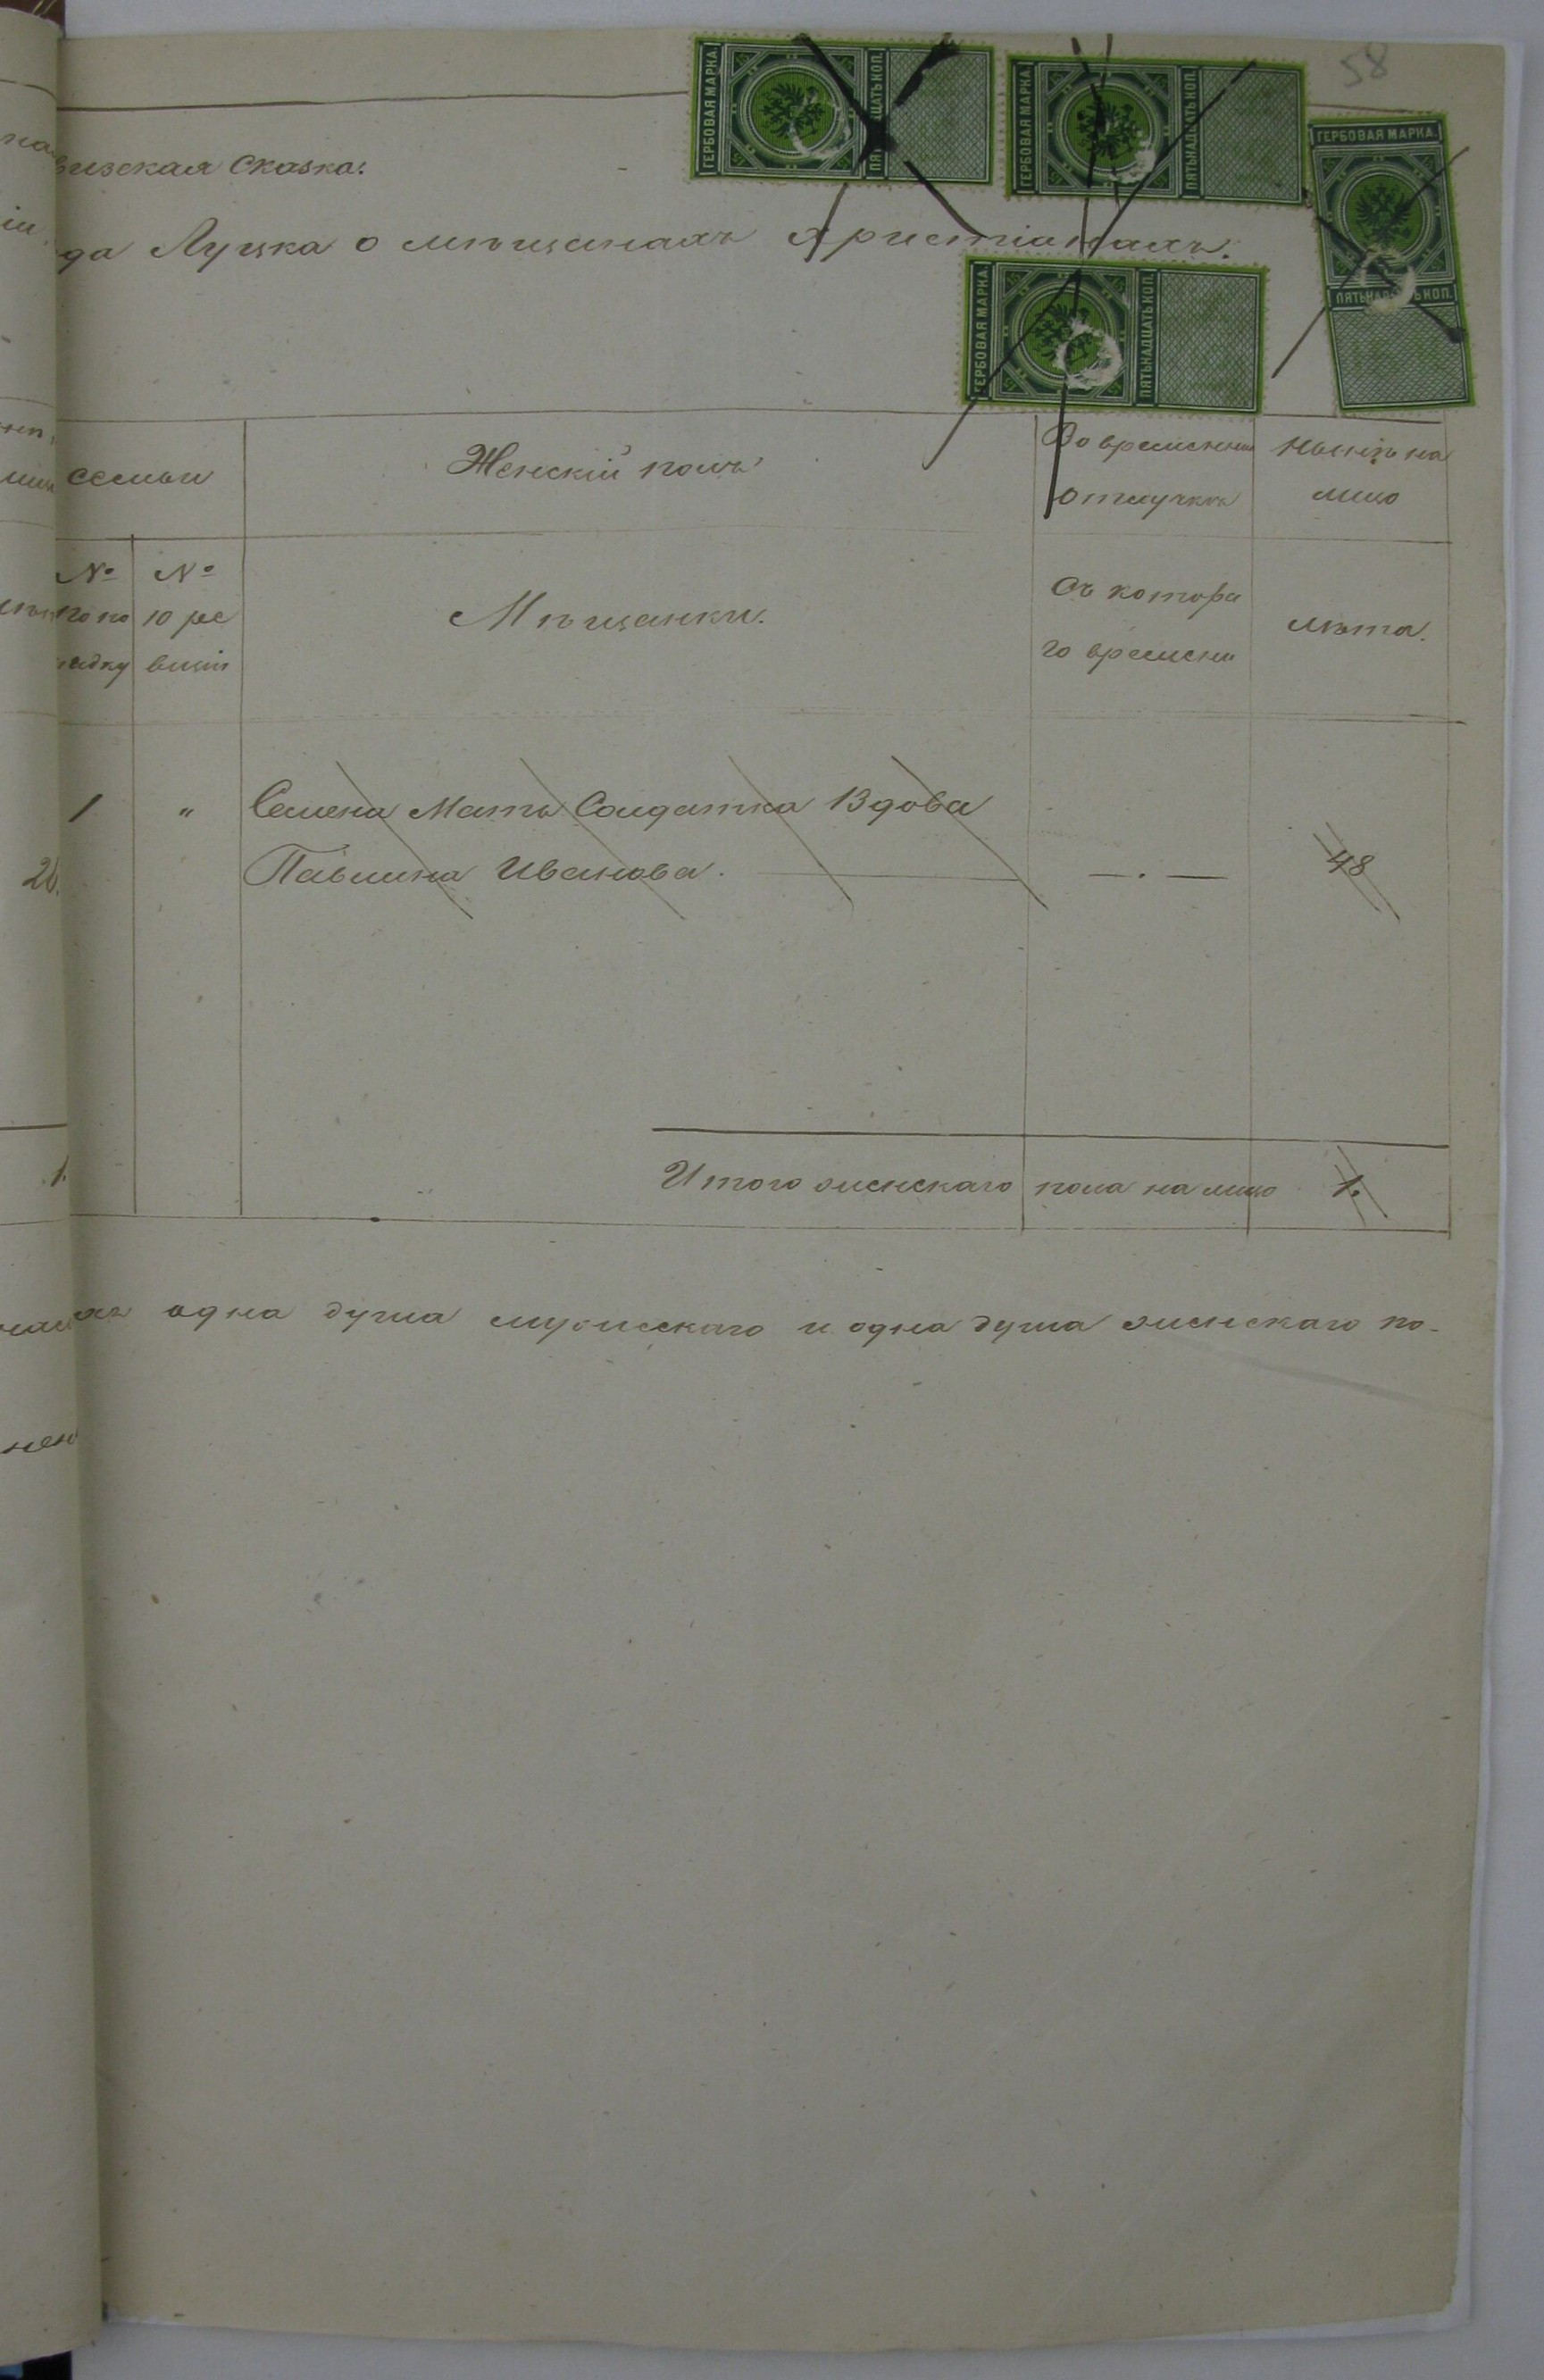 58
ГЕРБОВАЯ МАРКА.
ГЕРБОВАЯ МАРКА.
ПЯТЬНАДЦАТЬ КОП.
ГЕРБОВАЯ МАРКА.
ГЕРБОВАЯ МАРКА.
ПЯТЬНАДЦАТЬ КОП.
визская Сказка:
да Луцка о мѣщанахъ христіанахъ:
семьи
Женскій полъ
Во временной
отлучкѣ
Нынѣ на
лицо
№
по по
рядку
№
10 ре
визіи
Мѣщанки.
Съ котора
го времени
лѣта.
1 " Семена Мать Солдатка Вдова
Павлина Иванова. — . — 48
26.
Итого женскаго пола на лицо 1.
1.
хъ одна душа мужескаго и одна душа женскаго по-